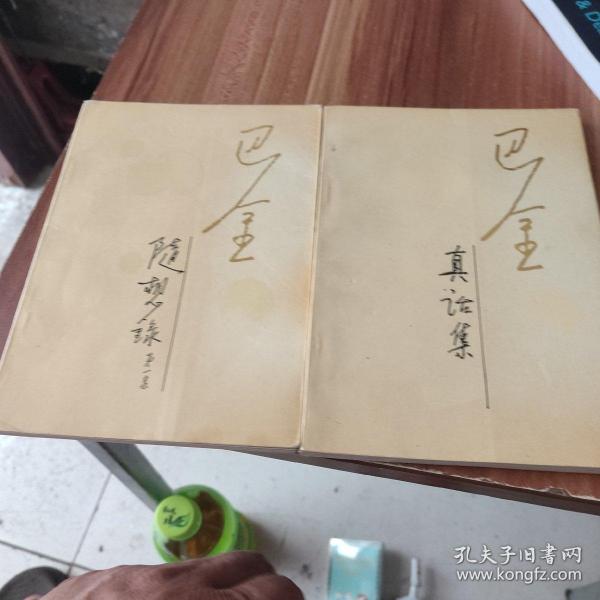 巴金
隨想錄
第一集
巴金
真话集
& D
孔夫子旧书网
www.kongfz.com